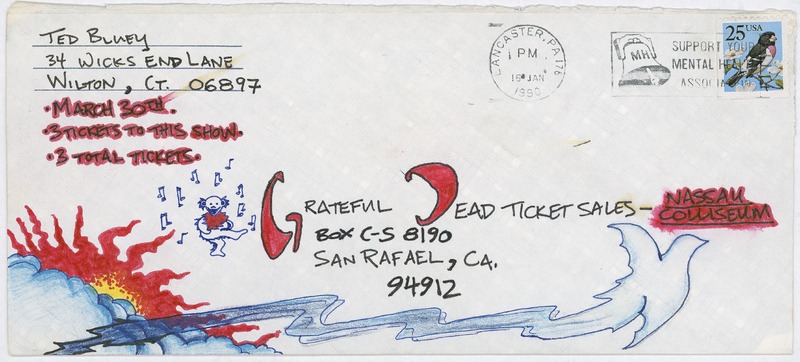 TED BLUEY
34 WICKS END LANE
WILTON, CT. 06897
• MARCH 30TH.
• 3 TICKETS TO THIS SHOW.
• 3 TOTAL TICKETS.
LANCASTER, PA 176
1 PM
16 JAN
1990
MH
SUPPORT YOUR
MENTAL HEAL
ASSOCIA
25 USA
GRATEFUL DEAD TICKET SALES — NASSAU
COLLISEUM
BOX C-S 8190
SAN RAFAEL, CA.
94912